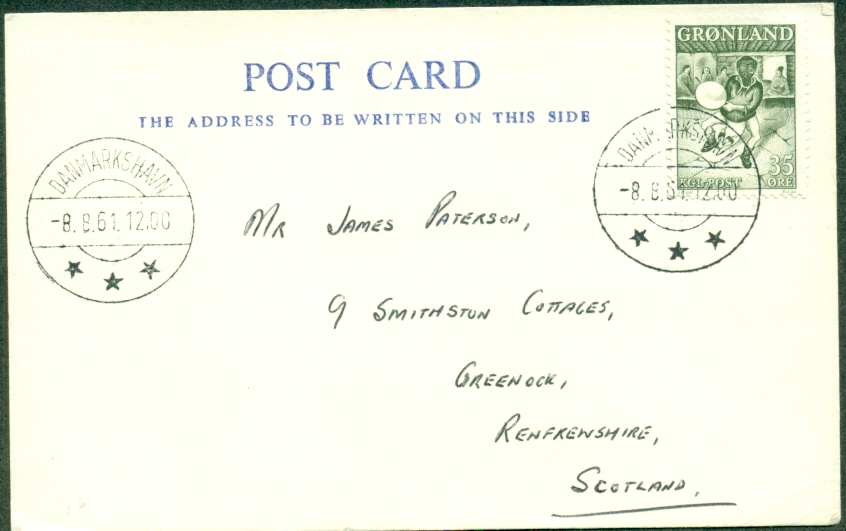 GRØNLAND
POST CARD
THE ADDRESS TO BE WRITTEN ON THIS SIDE
DANMARKSHAVN
-8. 8.61. 12.00
DANMARKSHAVN
-8. 8.61. 12.00
35
KGL POST ØRE
Mr James Paterson,
9 Smithston Cottages,
Greenock,
Renfrewshire,
Scotland,